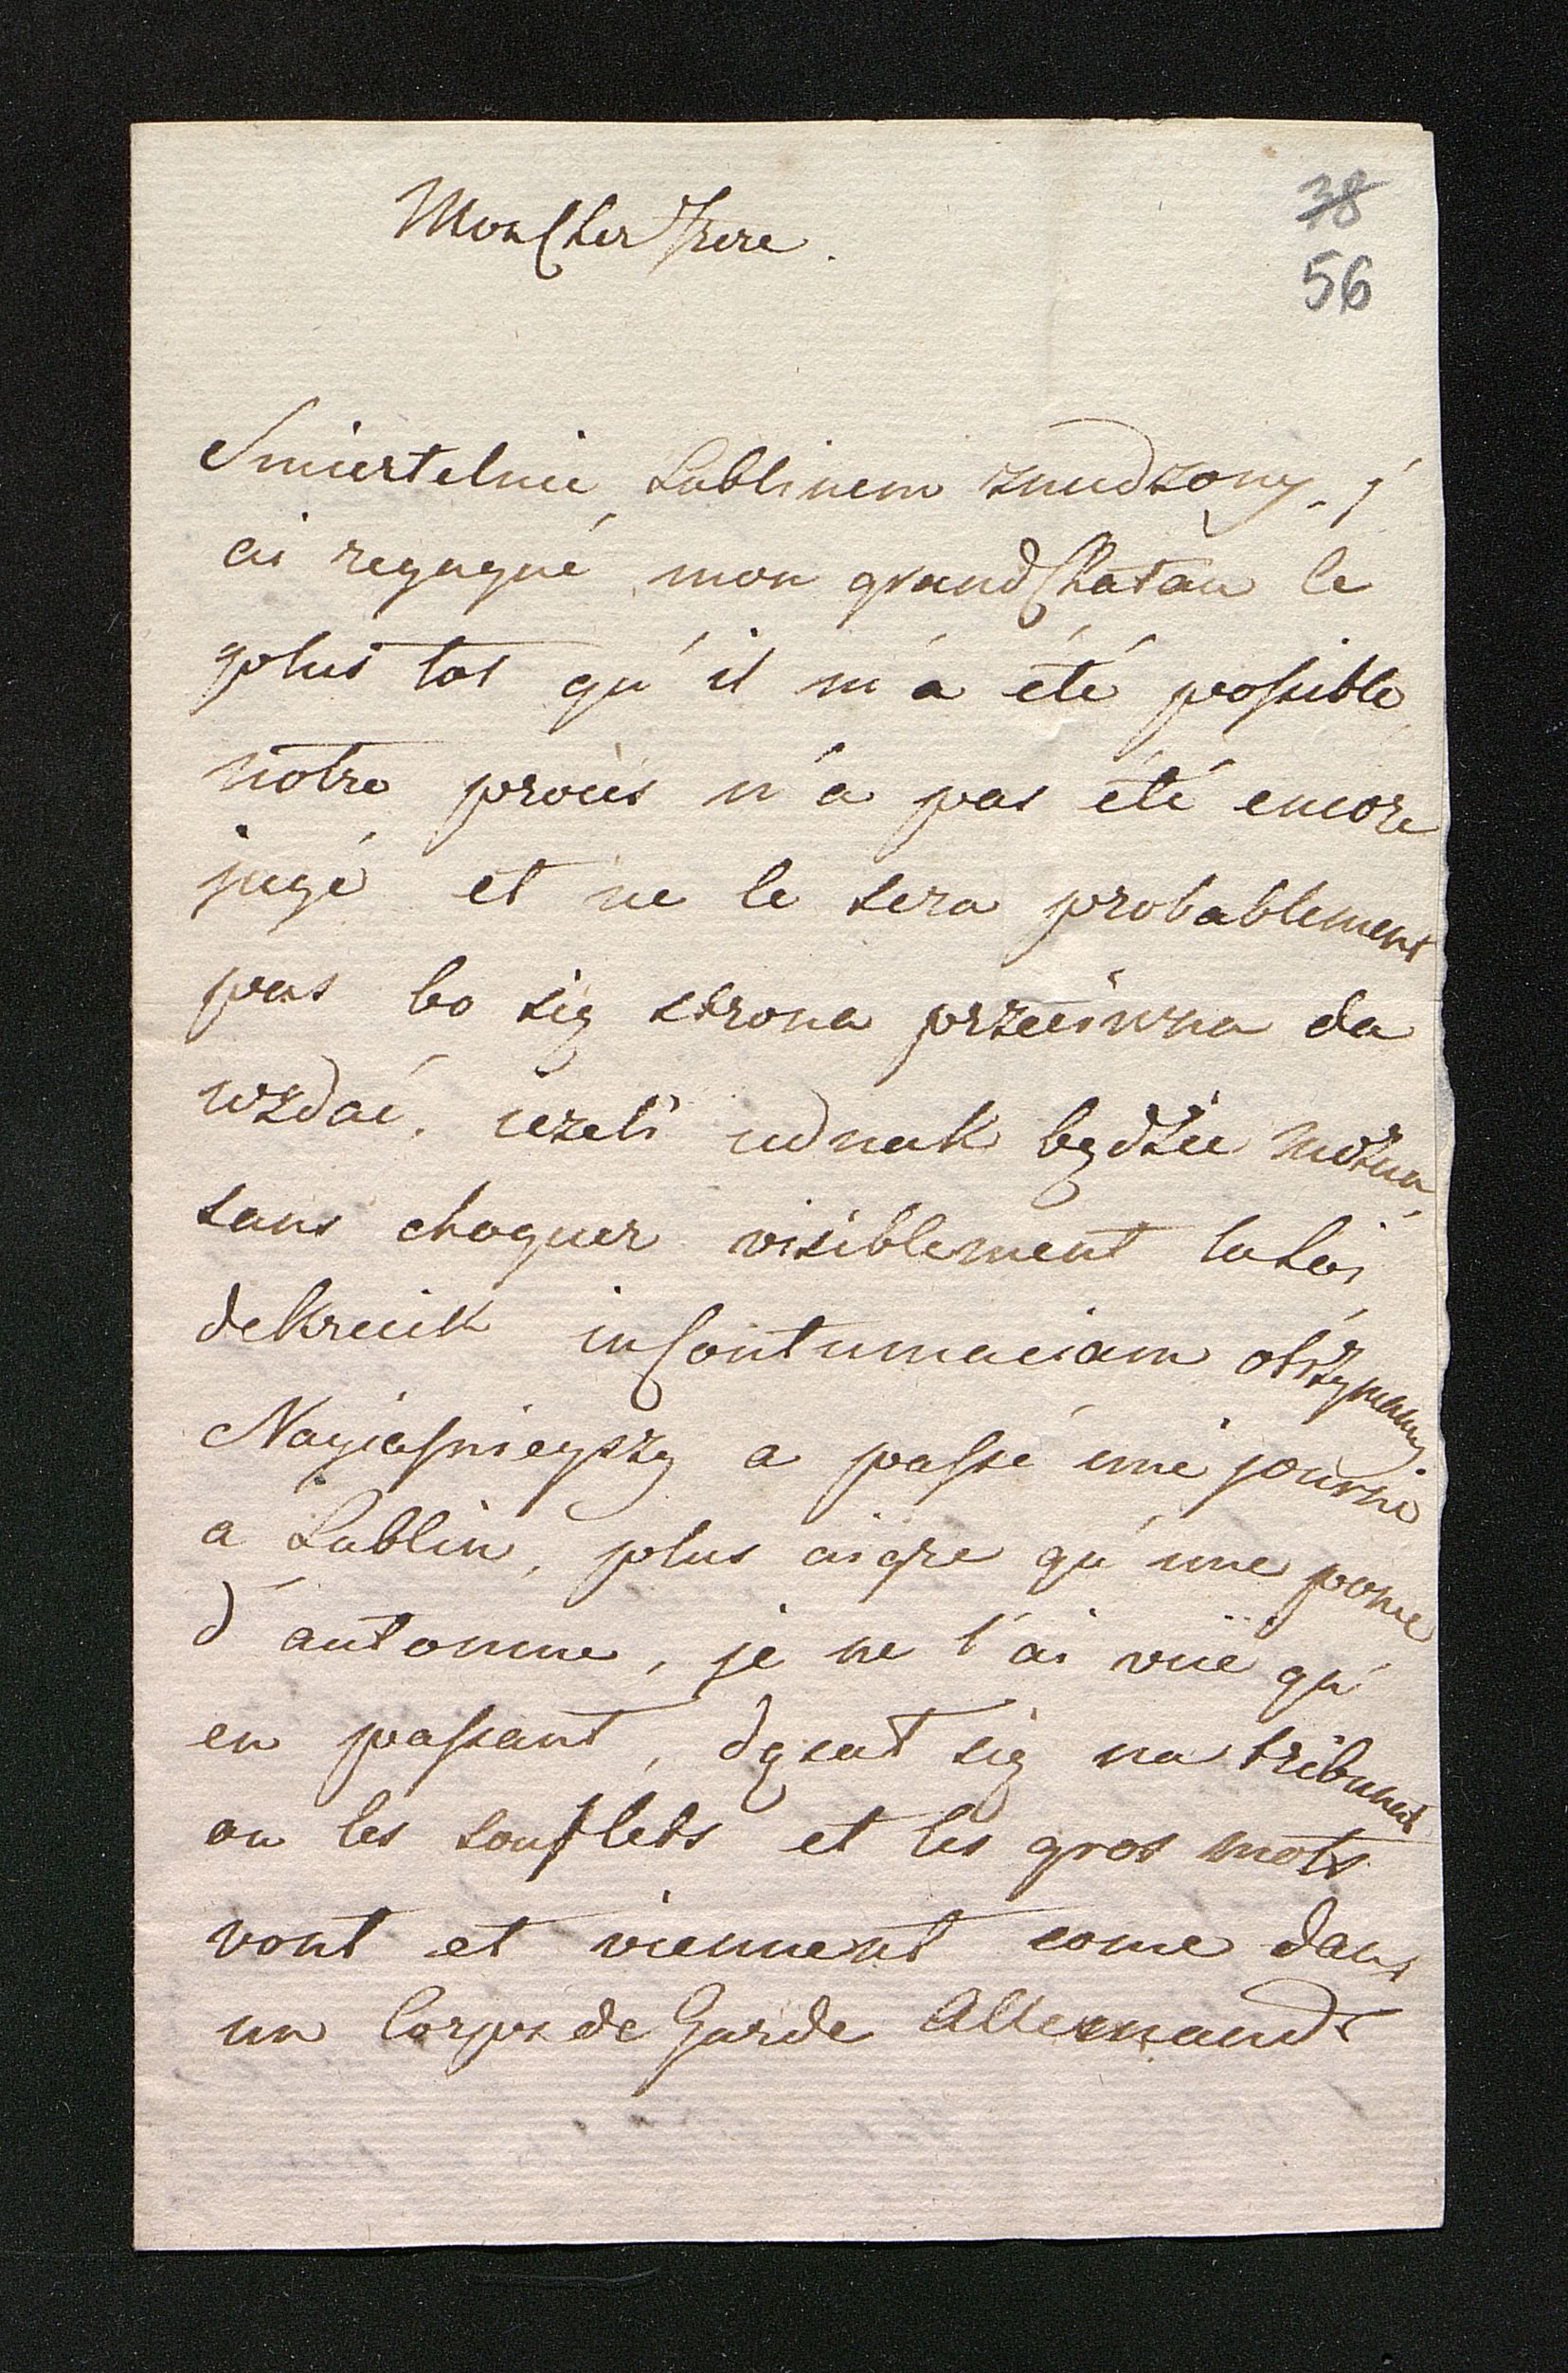 Mon Cher Frere.
38
56
Smiertelnie Lublinem znudzony, j'
ai regagné mon grand Chatau le
plus tot qu'il m'a été possible
notre procès n'a pas été encore
jugé et ne le sera probablement
pas bo się strona przeciwna da
wzdać, iezeli iednak będzie można
sans choquer visiblement la Loi
dekrecik in Contumaciam otrzymamy
Nayiasnieyszy a passé une journé
a Lublin, plus aigre qu'une pome
d'automne, je ne l'ai vüe qu'
en passant, dąsał się na tribunał
ou les souflets et les gros mots
vont et viennent come dans
un Corps de Garde Allemand